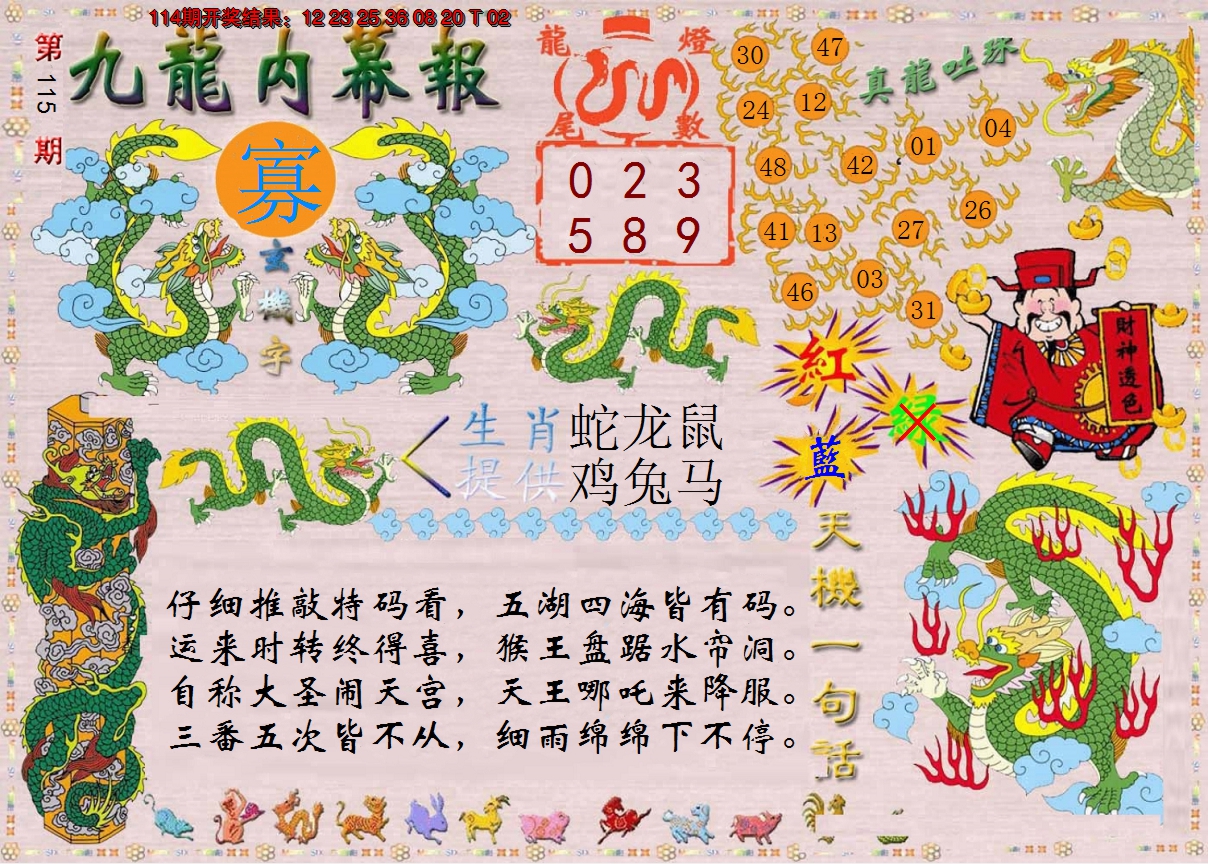 114期开奖结果：12 23 25 36 08 20 T 02
第115期
九龍内幕報
寡
玄機字
龍燈
尾數
0 2 3
5 8 9
真龍吐珠
30
47
24
12
01
04
48
42
26
41
13
27
46
03
31
財神透色
紅
绿
藍
生肖 蛇龙鼠
提供 鸡兔马
天機一句話
仔细推敲特码看，五湖四海皆有码。
运来时转终得喜，猴王盘踞水帘洞。
自称大圣闹天宫，天王哪吒来降服。
三番五次皆不从，细雨绵绵下不停。